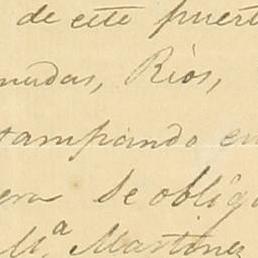 de este puert
mudas, Ríos,
tampando en
era Se oblig
M.ª Martínez